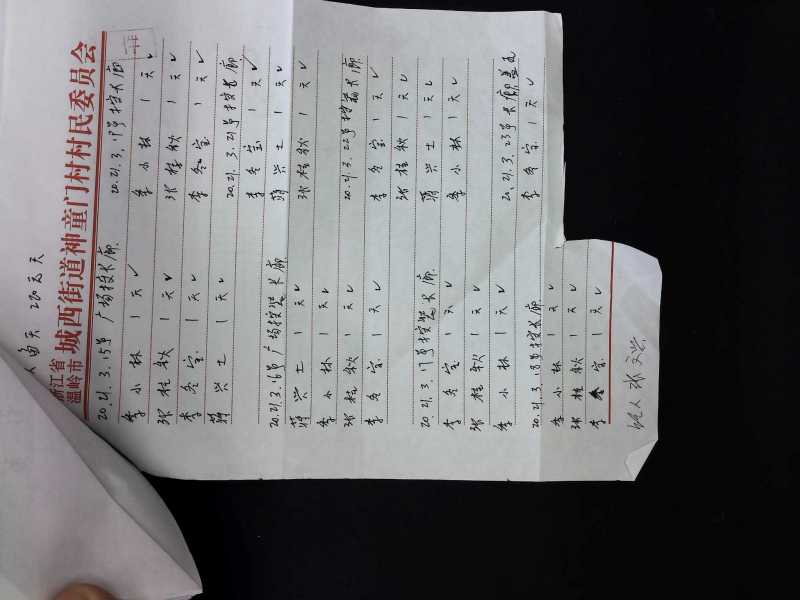 每天 230元天
浙江省
温岭市 城西街道神童门村村民委员会
20.21.3.15号 广场按长廊
季小林 1天✓
张桂秋 1天✓
李冬宝 1天✓
蒋兴土 1天✓
20.21.3.16号广场按装长廊
蒋兴土 1天✓
季小林 1天✓
张桂秋 1天✓
李冬宝 1天✓
20.21.3.17号按装长廊
李冬宝 1天✓
张桂秋 1天✓
季小林 1天✓
20.21.3.18号按长廊
季小林 1天✓
张桂秋 1天✓
李冬宝 1天✓
20.21.3.19号按长廊
季小林 1天✓
张桂秋 1天✓
李冬宝 1天✓
20.21.3.21号按长廊
李冬宝 1天✓
蒋兴土 1天✓
张桂秋 1天✓
20.21.3.22号按装长廊
李冬宝 1天✓
张桂秋 1天✓
蒋兴土 1天✓
季小林 1天✓
20.21.3.23号长廊盖瓦
李冬宝 1天✓
人 张文兴